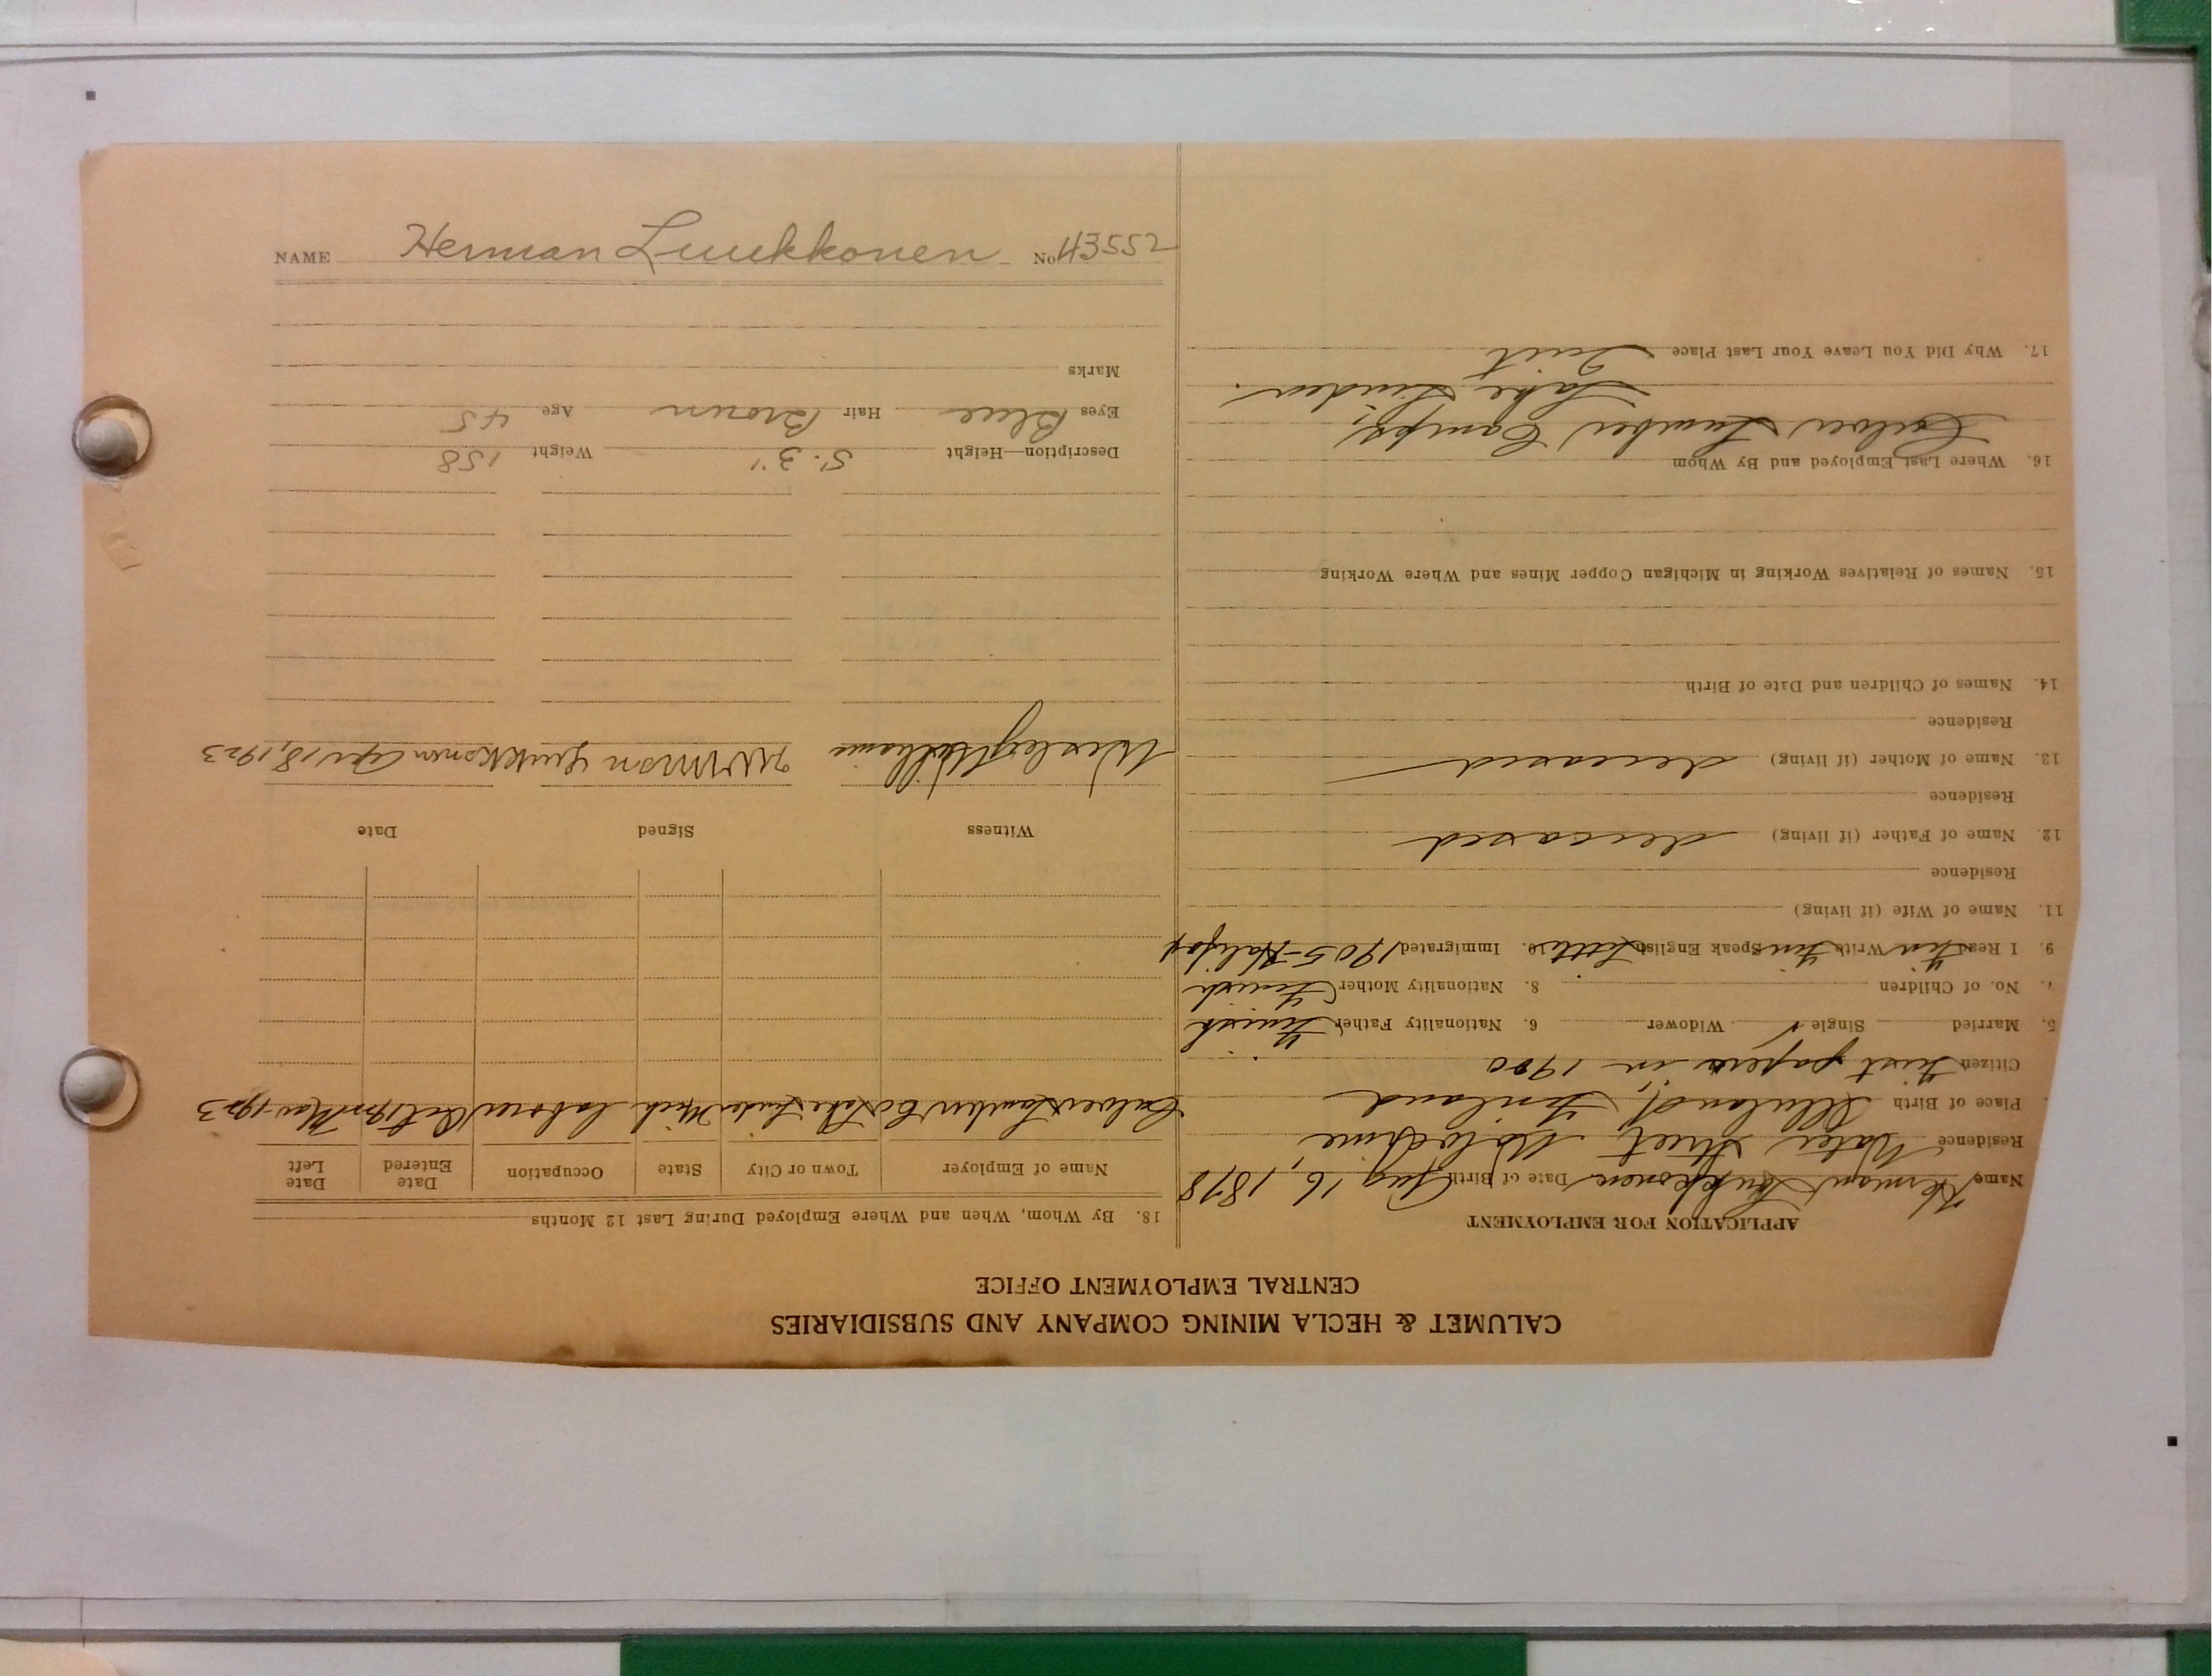 CALUMET & HECLA MINING COMPANY AND SUBSIDIARIES
CENTRAL EMPLOYMENT OFFICE
APPLICATION FOR EMPLOYMENT
Name Herman Luukkonen Date of Birth Aug 16, 1878
Residence Water Street,
Place of Birth Finland
Citizen First papers in 1900
5. Married Single ✓ Widower 6. Nationality Father Finish
7. No. of Children 8. Nationality Mother Finish
9. I Read Fin Write Fin Speak English Little 10. Immigrated 1905-Halifax
11. Name of Wife (if living)
Residence
12. Name of Father (if living) deceased
Residence
13. Name of Mother (if living) deceased
Residence
14. Names of Children and Date of Birth
15. Names of Relatives Working in Michigan Copper Mines and Where Working
16. Where Last Employed and By Whom
Culver Lumber Camps,
Lake Linden.
17. Why Did You Leave Your Last Place Quit
18. By Whom, When and Where Employed During Last 12 Months
Name of Employer Town or City State Occupation Date Entered Date Left
Culver Lumber Co Lake Linden Mich laborer Oct 1922 Mar 1923
Witness Signed Date
Wesley Williams Herman Luukkonen Apr 18, 1923
Description—Height 5' 3" Weight 158
Eyes Blue Hair Brown Age 45
Marks
NAME Herman Luukkonen No 43552